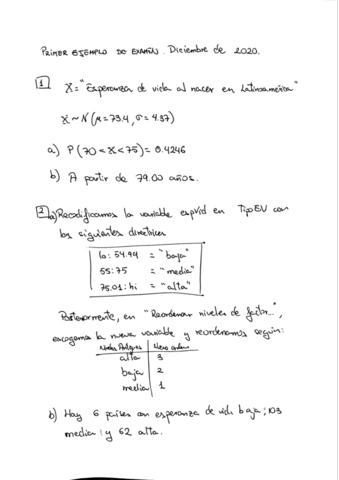 PRIMER EJEMPLO DE EXAMEN. Diciembre de 2020.
1 X = "Esperanza de vida al nacer en Latinoamérica"
X ~ N(μ = 73.4, σ = 4.37)
a) P(70 < X < 75) = 0.4246
b) A partir de 79.00 años.
2 a) Recodificamos la variable espVid en TipoEV con
las siguientes directrices
lo:54.99 = "baja"
55:75 = "media"
75.01:hi = "alta"
Posteriormente, en "Reordenar niveles de factor...",
escogemos la nueva variable y reordenamos según:
Niveles Antiguos Nuevo orden
alta 3
baja 2
media 1
b) Hay 6 países con esperanza de vida baja; 103
media; y 62 alta.